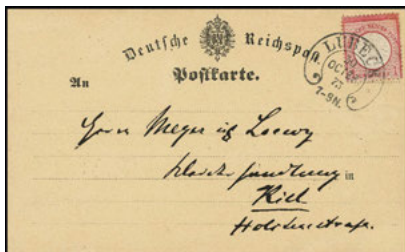 Deutsche Reichspost.
Postkarte.
LUBECK
OCTBR
7-8N.
An
Herrn Meyer & Loewy
handlung in
Kiel
Holstenstraße.